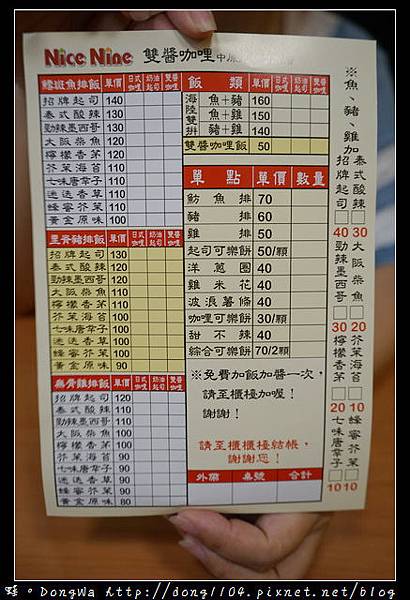 Nice Nine 雙醬咖哩
鱈斑魚排飯 單價 日式咖哩 奶油起司 雙醬咖哩
招牌起司 140
泰式酸辣 130
勁辣墨西哥 130
大阪柴魚 120
檸檬香茅 120
芥茉海苔 110
七味唐辛子 110
迷迭香草 110
蜂蜜芥茉 110
黃金原味 100
里脊豬排飯 單價 日式咖哩 奶油起司 雙醬咖哩
招牌起司 130
泰式酸辣 120
勁辣墨西哥 120
大阪柴魚 110
檸檬香茅 110
芥茉海苔 100
七味唐辛子 100
迷迭香草 100
蜂蜜芥茉 100
黃金原味 90
無骨雞排飯 單價 日式咖哩 奶油起司 雙醬咖哩
招牌起司 120
泰式酸辣 110
勁辣墨西哥 110
大阪柴魚 100
檸檬香茅 100
芥茉海苔 90
七味唐辛子 90
迷迭香草 90
蜂蜜芥茉 90
黃金原味 80
飯類 單價 日式咖哩 奶油起司 雙醬咖哩
海陸雙拼
魚+豬 160
魚+雞 150
豬+雞 140
雙醬咖哩飯 50
單點 單價 數量
魴魚排 70
豬排 60
雞排 50
起司可樂餅 50/顆
洋蔥圈 40
雞米花 40
波浪薯條 40
咖哩可樂餅 30/顆
甜不辣 40
綜合可樂餅 70/2顆
※免費加飯加醬一次，
請至櫃檯加喔！
謝謝！
請至櫃檯檯結帳，
謝謝您！
外帶 桌號 合計
※魚、豬、雞加
招牌起司 40
泰式酸辣 30
勁辣墨西哥 30
大阪柴魚 20
檸檬香茅 20
芥茉海苔 10
七味唐辛子 10
蜂蜜芥茉 10
蛙。DongWa http://dong1104.pixnet.net/blog